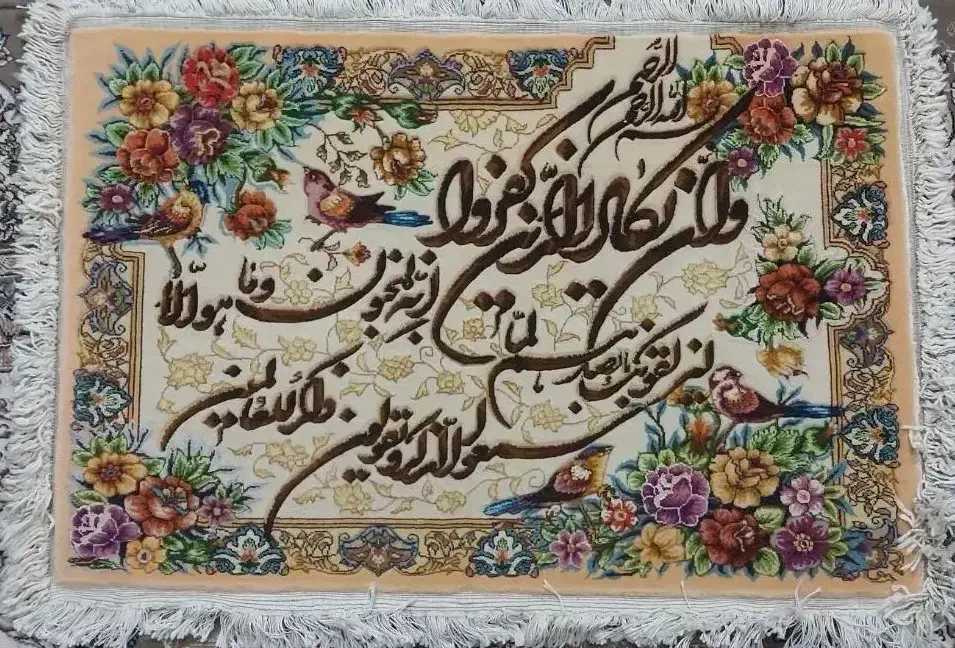 بسم الله الرحمن الرحيم
وَإن يَكادُ الَّذينَ كَفَروا
لیزلقونک بابصارهم لَمّا
سمعوا الذّکر و یقولون
اِنّه لمجنون وما هو الّا
ذکرٌ للعالمین